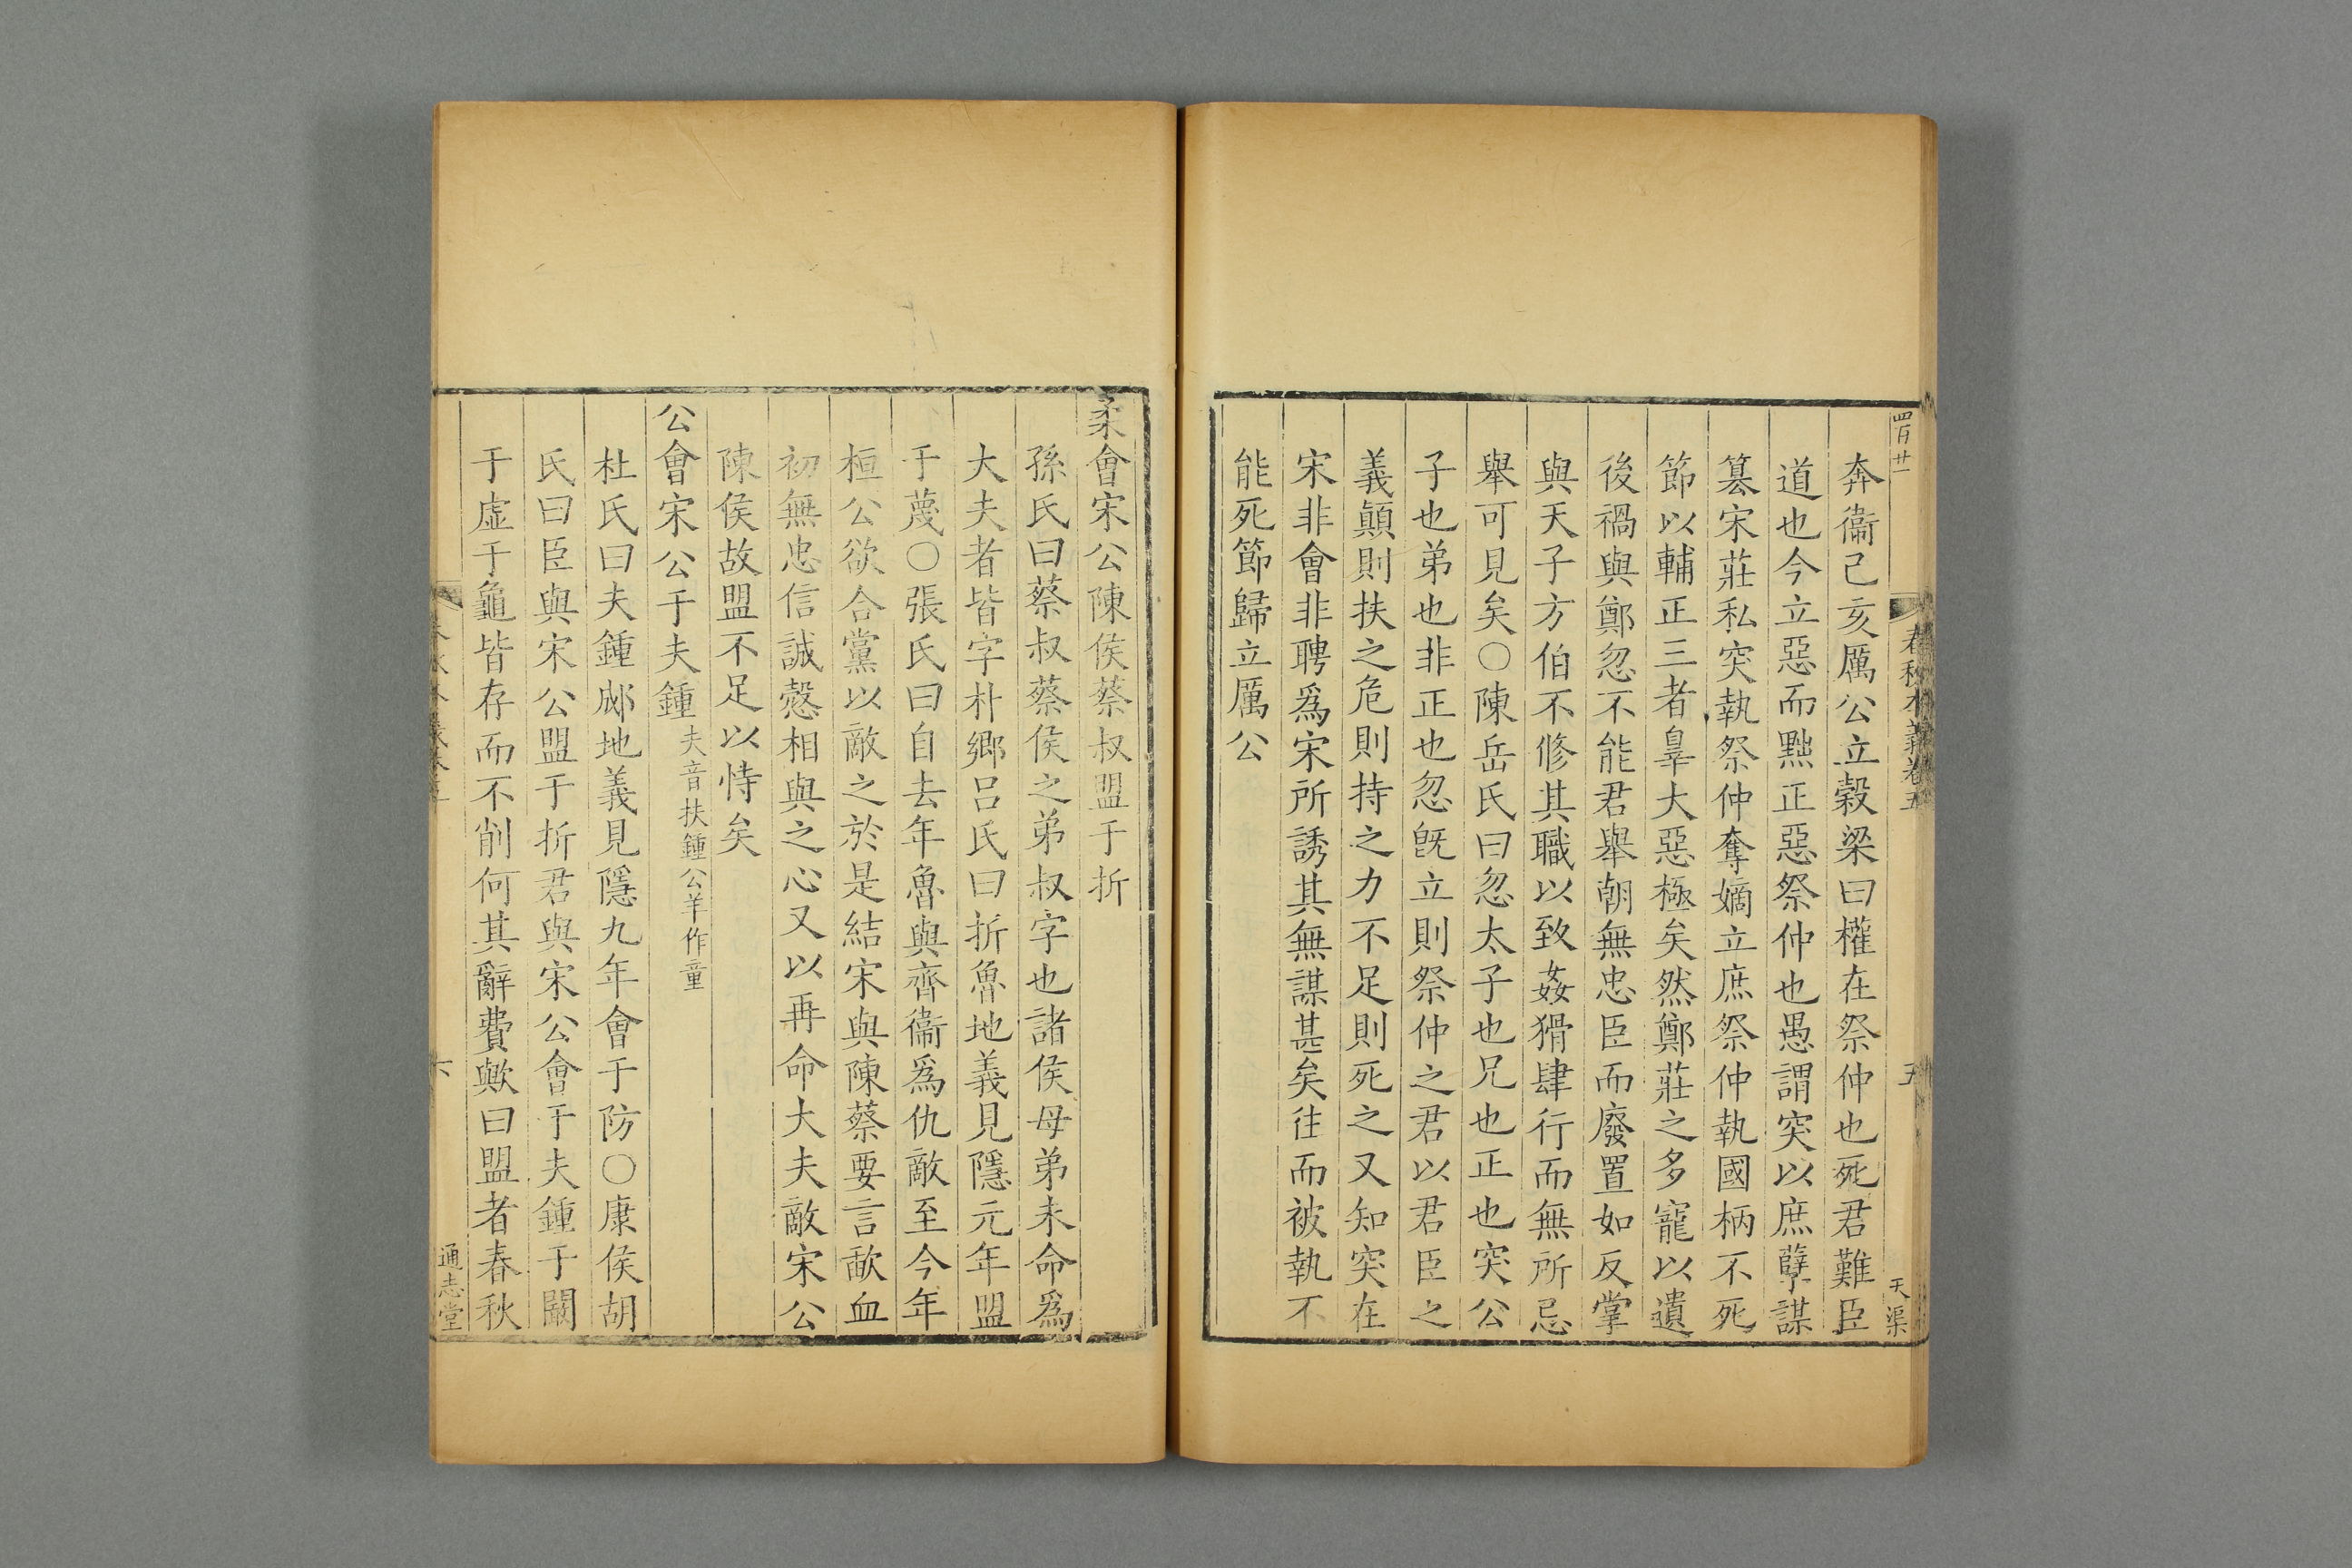 四百廿一
春秋本義卷五
五
天渠
奔衞己亥厲公立穀梁曰權在祭仲也死君難臣
道也今立惡而黜正惡祭仲也愚謂突以庶孽謀
篡宋莊私突執祭仲奪嫡立庶祭仲執國柄不死
節以輔正三者辠大惡極矣然鄭莊之多寵以遺
後禍與鄭忽不能君舉朝無忠臣而廢置如反掌
與天子方伯不修其職以致姦猾肆行而無所忌
舉可見矣○陳岳氏曰忽太子也兄也正也突公
子也弟也非正也忽旣立則祭仲之君以君臣之
義顚則扶之危則持之力不足則死之又知突在
宋非會非聘爲宋所誘其無謀甚矣往而被執不
能死節歸立厲公
柔會宋公陳侯蔡叔盟于折
孫氏曰蔡叔蔡侯之弟叔字也諸侯母弟未命爲
大夫者皆字朴鄉吕氏曰折魯地義見隱元年盟
于蔑○張氏曰自去年魯與齊衞爲仇敵至今年
桓公欲合黨以敵之於是結宋與陳蔡要言歃血
初無忠信誠慤相與之心又以再命大夫敵宋公
陳侯故盟不足以恃矣
公會宋公于夫鍾夫音扶鍾公羊作童
杜氏曰夫鍾郕地義見隱九年會于防○康侯胡
氏曰臣與宋公盟于折君與宋公會于夫鍾于闞
于虛于龜皆存而不削何其辭費歟曰盟者春秋
六
通志堂